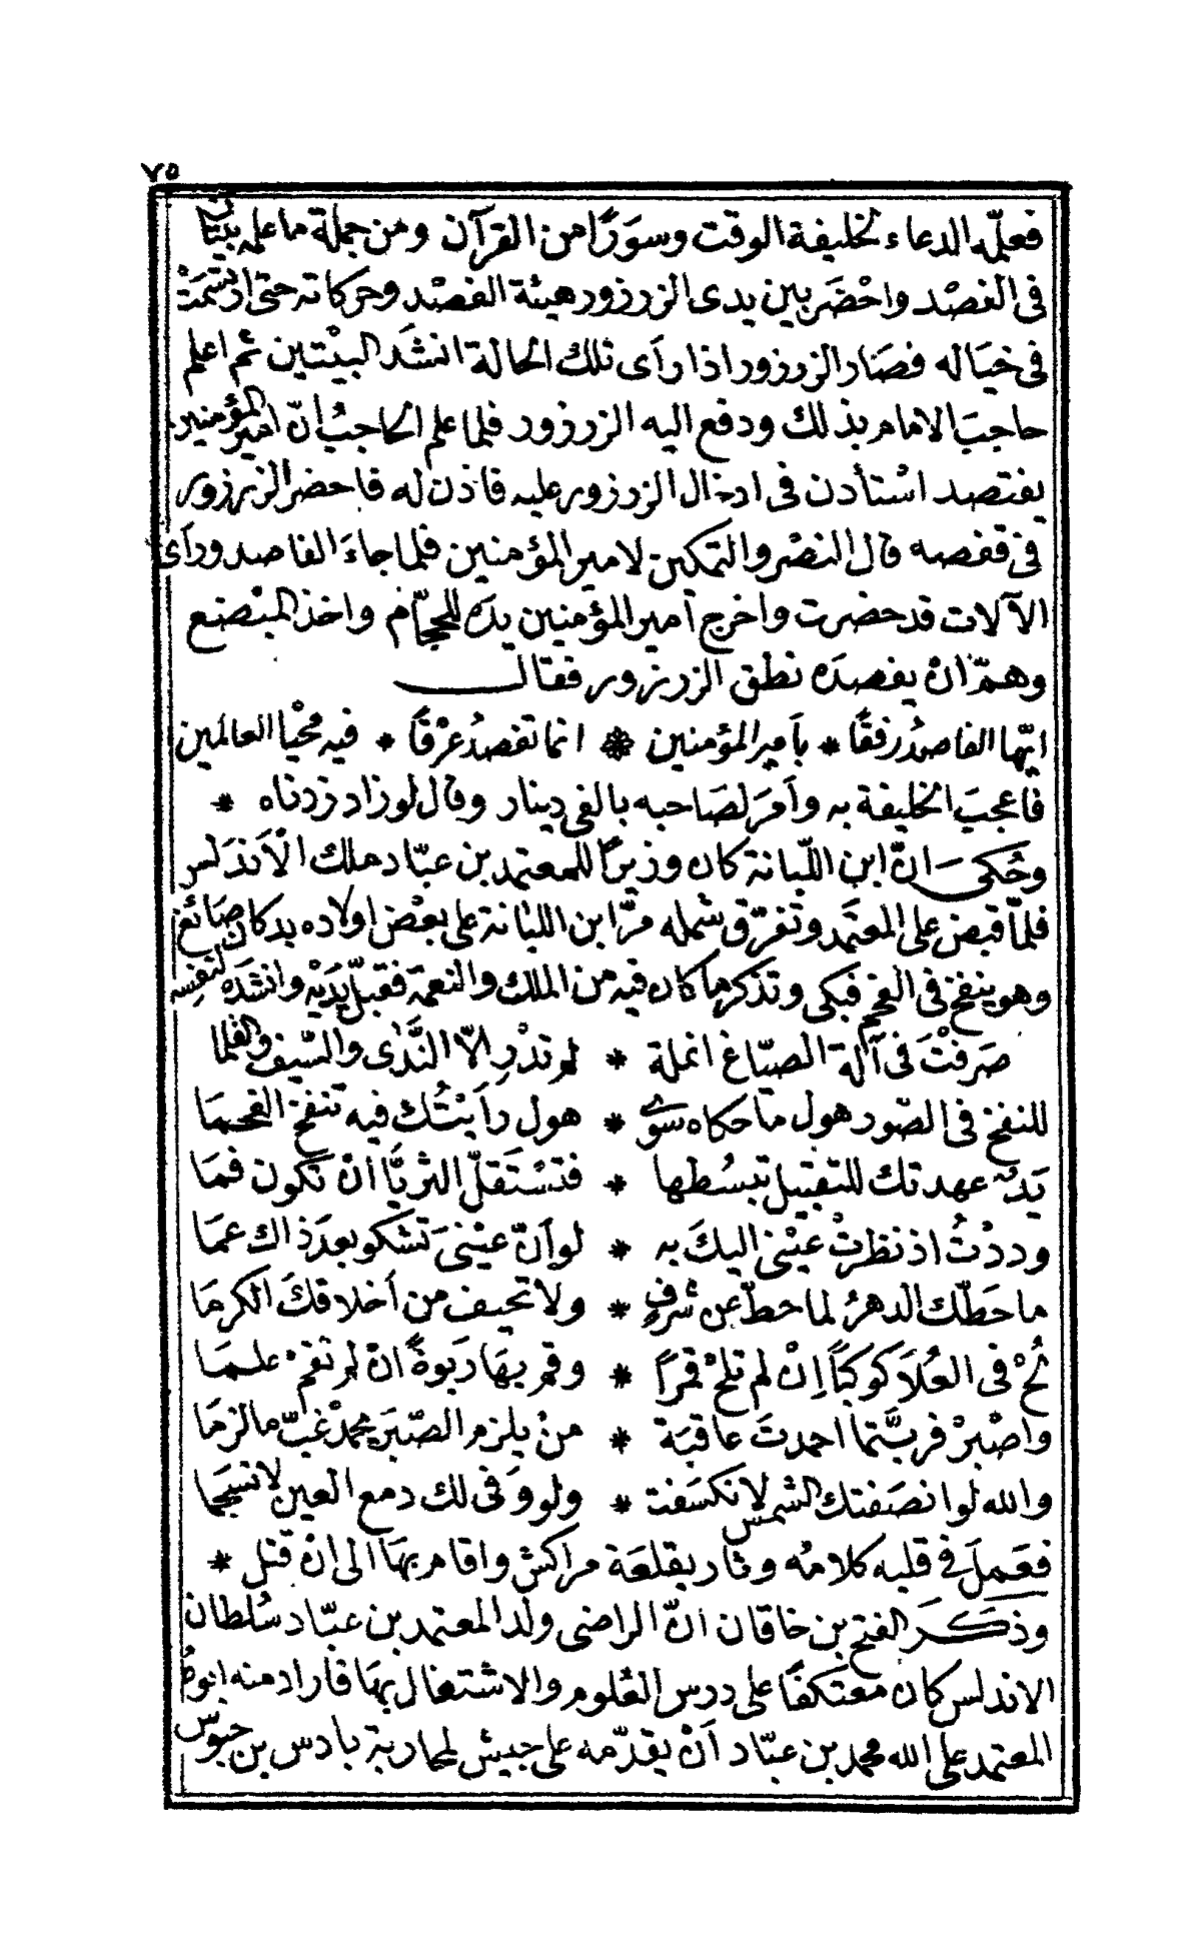 ٧٥
فعلّمه الدعاء لخليفة الوقت وسورًا من القرآن ومن جملة ما علمه بيتان
فى الفصْد واحْضَر بين يدى الزرزور هيئة الفصْد وحركاته حتى ارتسمتْ
فى خيَاله فصَار الزرزور اذا رآى تلك الحالة انشَد البيْتين ثم اعلم
حاجبَ الامام بذلك ودفع اليه الزرزور فلما علم الحاجبُ انّ امير المؤمنين
يفتصد اسْتأذن فى ادخال الزرزور عليه فاذن له فاحضر الزرزور
فى قفصه قال النصْر والتمكين لامير المؤمنين فلما جاءَ الفاصد ورآى
الآلات قد حضرت واخرج أمير المؤمنين يدَه للحجّام واخذ المبْضع
وهمّ انْ يفصدَه نطق الزرزور فقال
ايّها الفاصدُ رفقًا * بأمير المؤمنين * انما تقصدُ عرْقًا * فيه محْيا العالمين
فاعجبَ الخليفة به وأمَر لصَاحبه بالفى دينار وقال لو زاد زدناه *
وحُكى انّ ابن اللّبانة كان وزيرًا للمعتمد بن عبّاد ملك الْاندَلس
فلمّا قبض على المعتَمد وتفرّق شمله مرّ ابن اللبانة على بعْض اولاده بدكان صَائغ
وهو ينفخ فى الفحم فبكى وتذكر ما كان فيه من الملك والنعمة فقبّل يدَيْه وانشدَه لنفسِه
صَرفْتَ فى آلة الصيّاغ انملة * لم تدْرِ الّا النَّدٰى والسّيف والقلما
للنفخ فى الصّور هول مَا حكاه سوى * هول رأيتُك فيه تنفخ الفحمَا
يَد عهدتك للتقبيل تبسُطها * فتسْتَقلّ الثريّا انْ تكون فمَا
وددْتُ اذ نظرتْ عيْنى اليكَ به * لو اَنّ عيْنى تشكو بعدَ ذاك عمَا
ما حَطّك الدهرُ لما حطّ عن شرفٍ * ولا تحيف من اَخلاقكَ الكرمَا
لُحْ فى العُلَا كوكبًا اِنْ لم تلحْ قمرًا * وقم بهَا ربوةً انْ لم تقمْ علمَا
واصْبرْ فربّتما احمدتَ عاقبَة * منْ يلزم الصّبَر يحمدْ غبّ ما لزمَا
والله لو انصَفتك الشمس لانكسَفت * ولو وَفى لك دمع العين لانسجما
فعَمِلَ فى قلبه كلامُه وثار بقلعَة مراكش واقام بهَا الى انْ قتل *
وذكَرَ الفتح بن خاقان انّ الراضى ولد المعتمد بن عبّاد سُلطان
الاندلس كان معتكفًا على درس العُلوم والاشتغال بهَا فاراد منه ابوهُ
المعتمد على الله محمد بن عبّاد اَنْ يقدّمه على جيش لمحاربة بادس بن حبوس